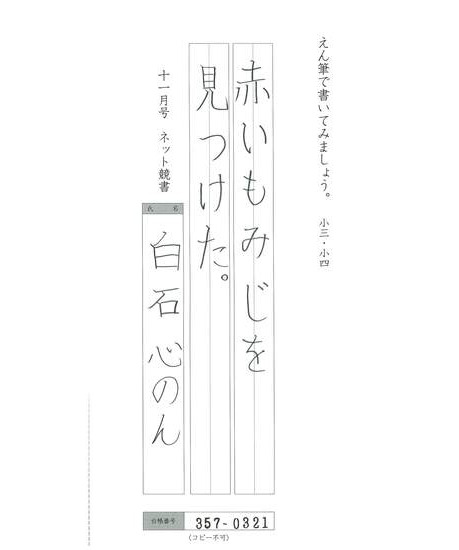 えん筆で書いてみましょう。 小三・小四
赤いもみじを
見つけた。
十一月号 ネット競書
氏名
白石心のん
合格番号 357-0321
(コピー不可)